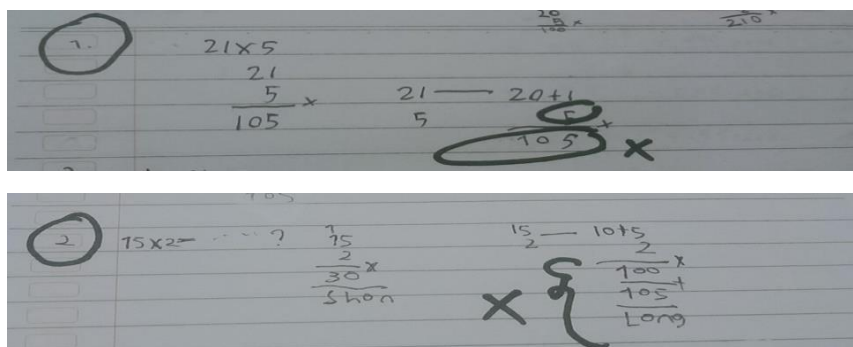 20
5 ×
100
210 ×
1.
21×5
21
5 ×
105
21 — 20+1
5 5 ×
105 ×
105
2
15×2= ...... ?
1
15
2
30 ×
Shon
15 — 10+5
2 2
100 ×
105 +
Long
×